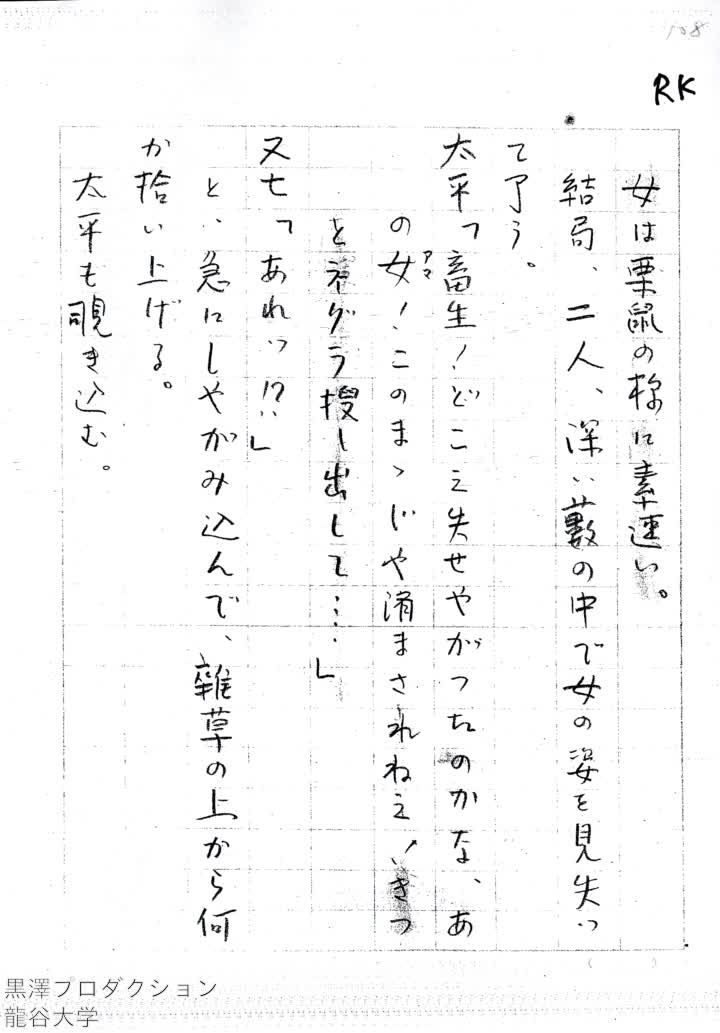 108
RK
女は栗鼠の様に素速い。
結局、二人、深い藪の中で女の姿を見失っ
て了う。
太平「畜生！どこえ失せやがつたのかな、あ
の女！このまゝじや済まされねえ！きつ
アマ
とネグラ捜し出して……」
又七「あれッ!?」
と、急にしやがみ込んで、雑草の上から何
か拾い上げる。
太平も覗き込む。
黒澤プロダクション
龍谷大学